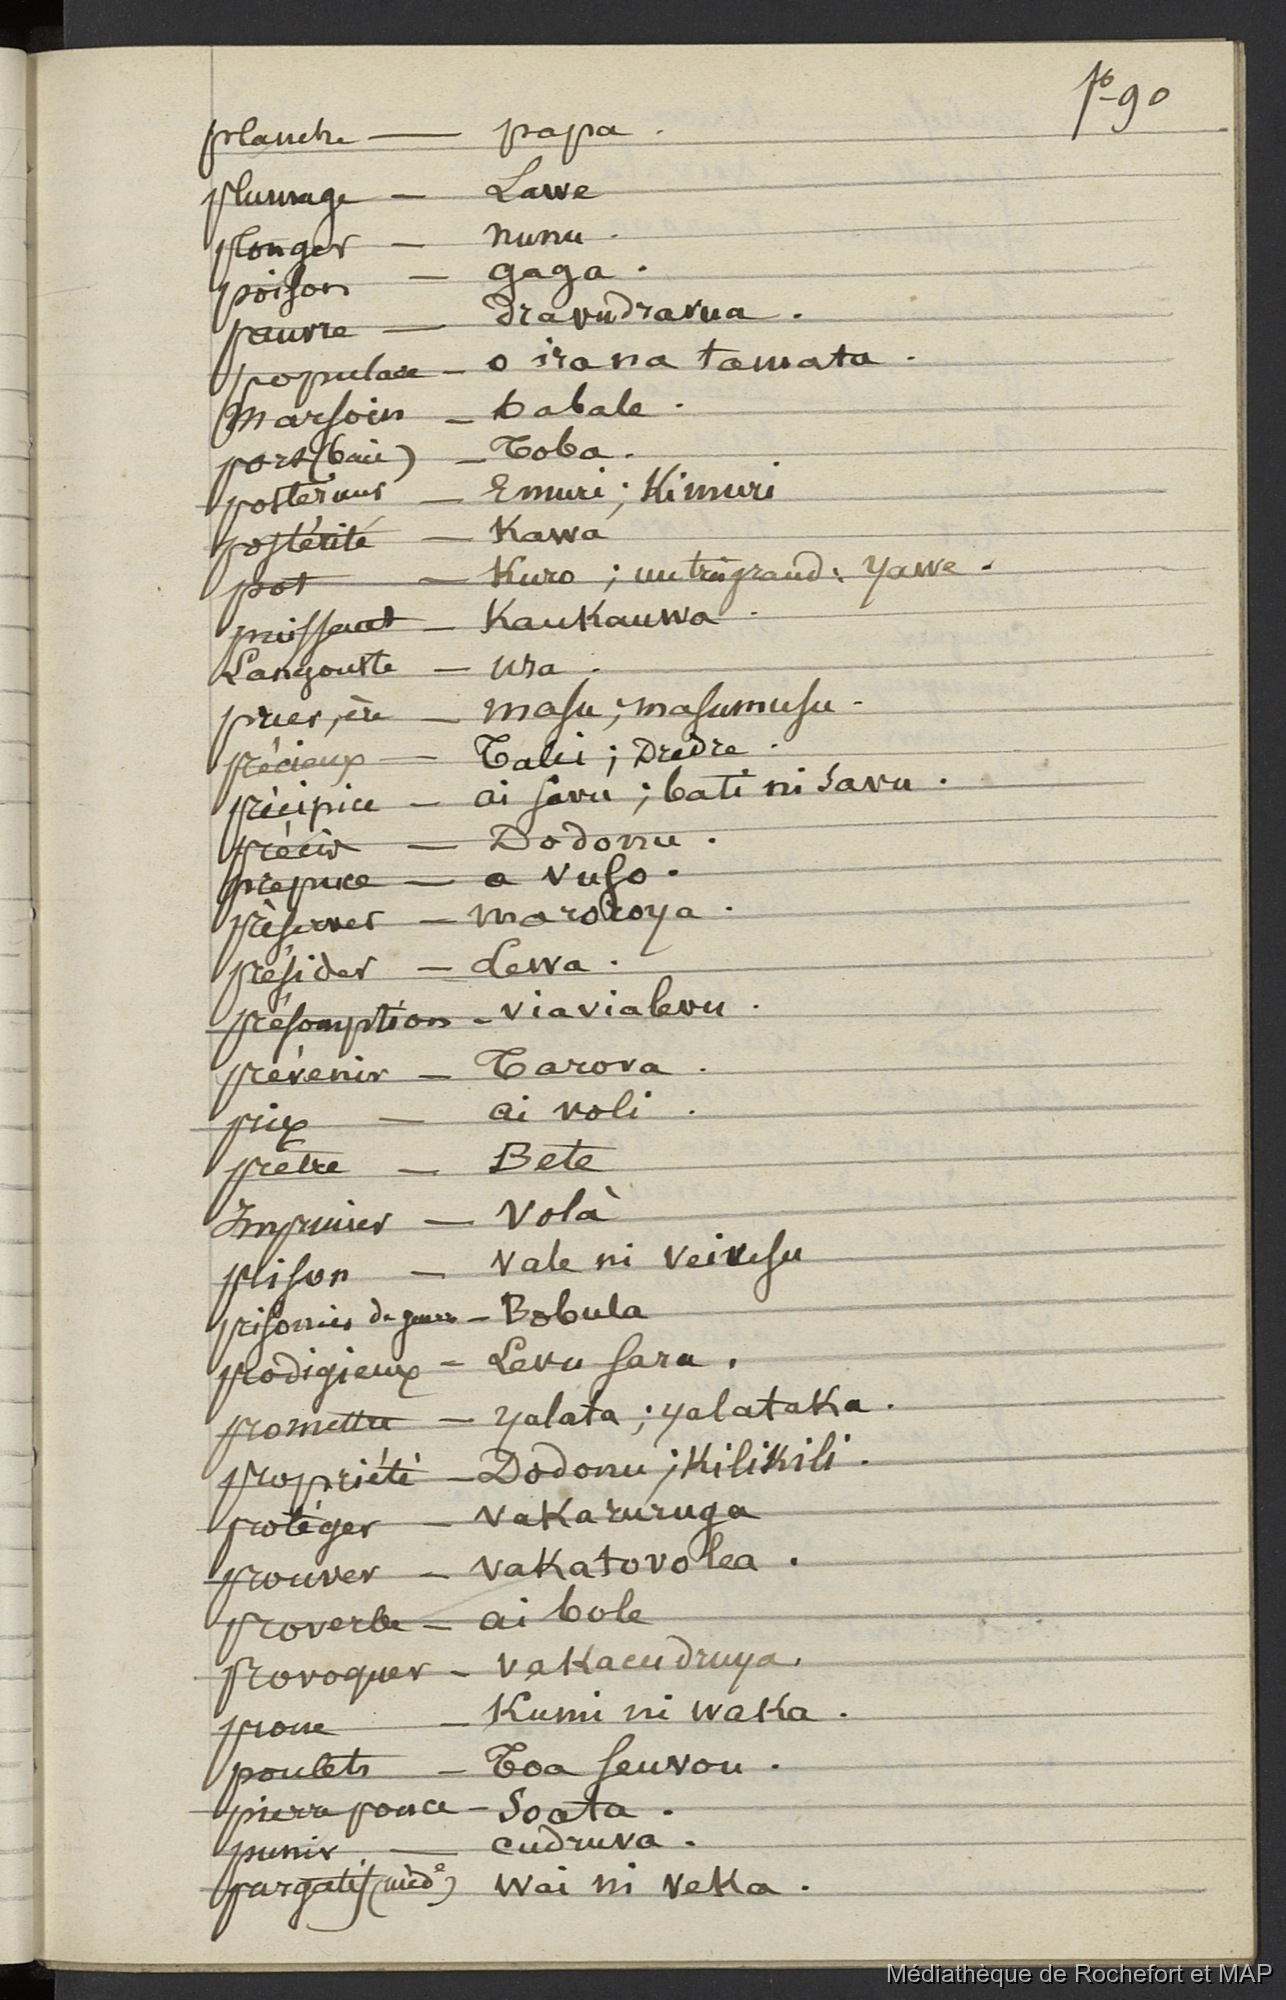 fo-90
planche — papa.
plumage — Lawe
plonger — nunu.
poison — gaga.
pauvre — dravudravua.
populace — o ira na tamata.
Marsoin — babale.
port (baie) — Toba.
postérieur — Emuri; Kimuri
postérité — Kawa
pot — Kuro; un très grand: yawe.
puissant — Kaukauwa.
Langouste — ura.
prier, ère — masu; masumusu.
précieux — Talei; Dredre.
précipice — ai savu; bati ni savu.
précis — Dodonu.
prepuce — a vuso.
préserver — maroroya.
présider — Lewa.
présomption — viavialevu.
prévenir — Tarova.
prix — ai voli.
prêtre — Bete
Imprimer — Volà
prison — vale ni veivesu
prisonier de guerre — Bobula
prodigieux — Levu sara.
promettre — yalata; yalataka.
propriété — Dodonu; Kilikili.
protéger — vakaruruga
prouver — vakatovolea.
proverbe — ai bole
provoquer — vakacudruya.
proue — Kumi ni waka.
poulets — Toa seuvou.
pierre ponce — Soata.
punir — cudruva.
purgatif (médè) wai ni veka.
Médiathèque de Rochefort et MAP